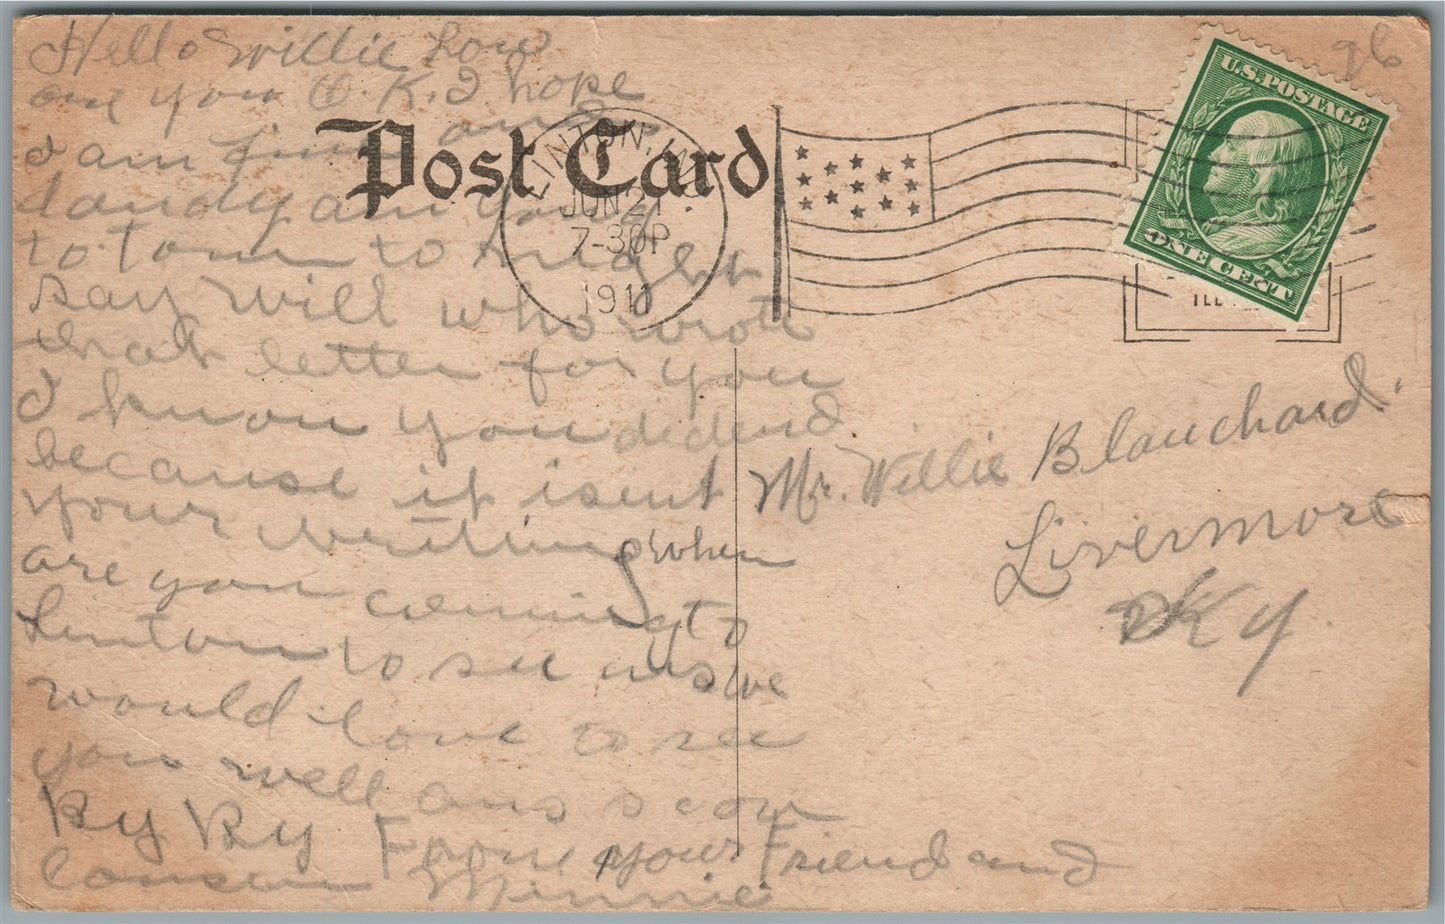 Hello Willie how
are you O.K. I hope
I am fine and
dandy am going
to town to night
Say Will who wrote
that letter for you
I know you dident
because it isent
your writting when
are you coming to
Linton to see us we
would love to see
you well ans soon
By By From your Friend and
Cousin Minnie
Post Card
LINTON, IND.
JUN 21
7-30P
1911
U.S. POSTAGE
ONE CENT
96
Mr. Willie Blanchard
Livermore
Ky